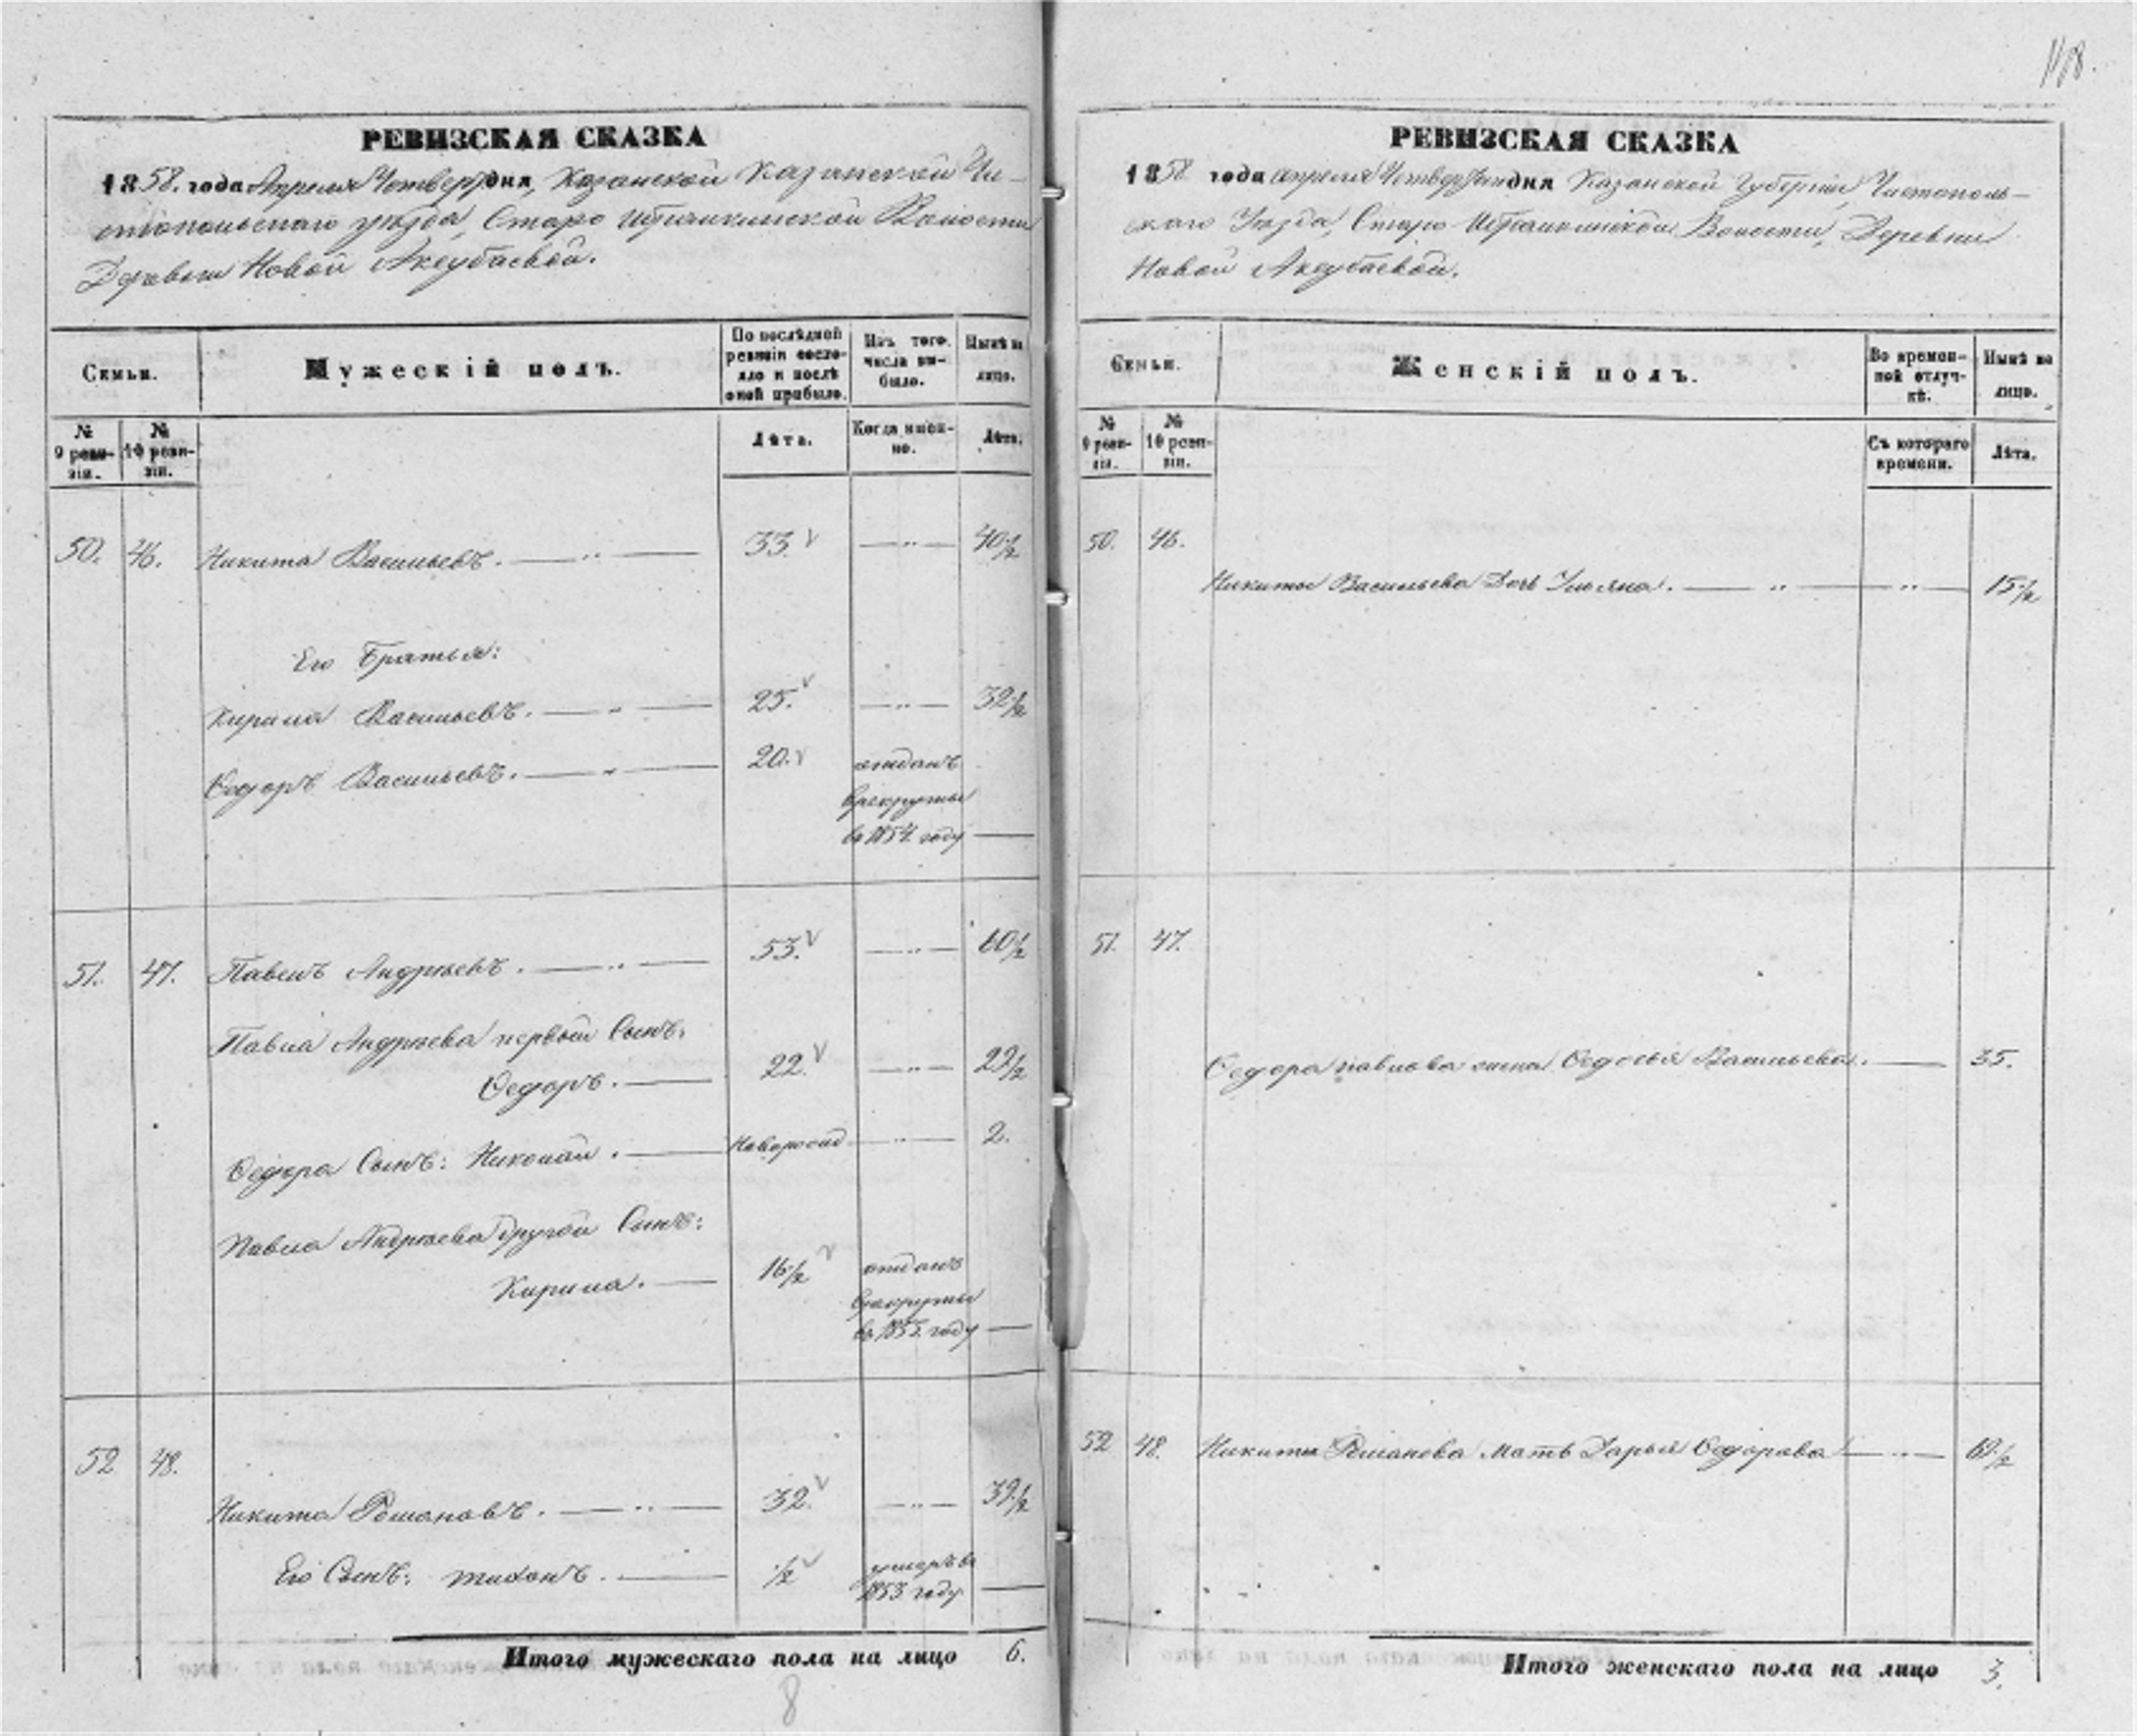 118.
РЕВИЗСКАЯ СКАЗКА
1858. года Апреля Четвертдня, Казанской Казанской Чи-
стопольскаго уѣзда, Старо Ибрайкинской Волости
Деревни Новой Аксубаевой.
Семьи.
Мужескій полъ.
По послѣдней ревизіи состояло и послѣ оной прибыло.
Изъ того числа выбыло.
Нынѣ на лицо.
№ 9 ревизіи.
№ 10 ревизіи.
Лѣта.
Когда именно.
Лѣта.
50. 46. Никита Васильевъ. 33. 40½
Его Братья:
Кирила Васильевъ. 25. 32½
Ѳедоръ Васильевъ. 20. отданъ
врекруты
въ 1854. году
51. 47. Павелъ Андреевъ. 53. 60½
Павла Андреева первый Сынъ:
Ѳедоръ. 22. 29½
Ѳедора Сынъ: Николай. Новорожд 2.
Павла Андреева другой Сынъ:
Кирила. 16½ отданъ
врекруты
въ 1855. году
52 48. Никита Романовъ. 32. 39½
Его Сынъ: тихонъ. ½ умеръ въ
1853 году
Итого мужескаго пола на лицо 6.
8
РЕВИЗСКАЯ СКАЗКА
1858 года апреля Четвертаго дня Казанской Губерніи, Чистополь-
скаго Уѣзда, Старо Ибрайкинской Волости, Деревни
Новой Аксубаевой.
Семьи.
Женскій полъ.
Во временной отлучкѣ.
Нынѣ на лицо.
№ 9 ревизіи.
№ 10 ревизіи.
Съ котораго времени.
Лѣта.
50. 46.
Никиты Васильева Дочь Ульяна. 15½
51. 47.
Ѳедора павлова жена Ѳедосья Васильева. 35.
52 48. Никиты Романова мать Дарья Ѳедорова 62½
Итого женскаго пола на лицо 3.